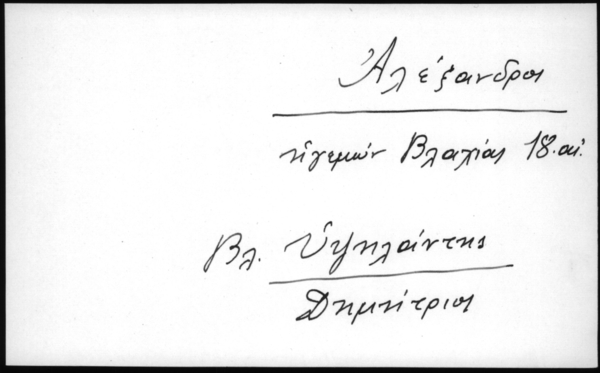 Ἀλέξανδρος
ἡγεμών Βλαχίας 18. αἰ.
Βλ. Ὑψηλάντης
Δημήτριος